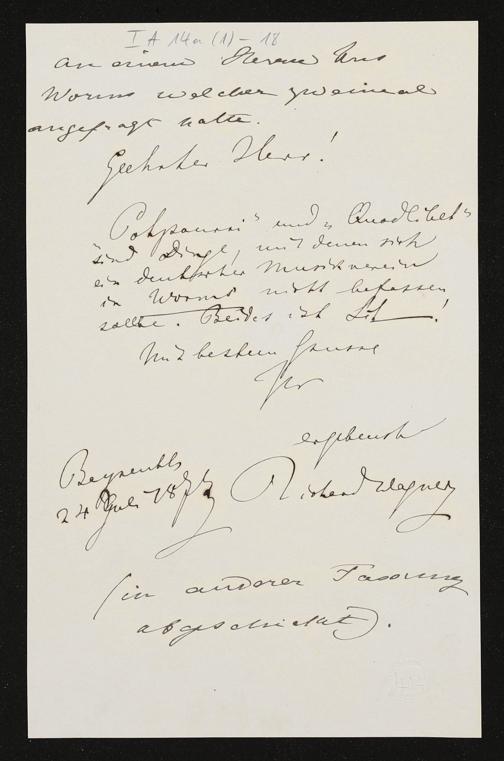 I A 14a (1) - 18
An einem Herrn aus
Worms welcher zweimal
angefragt hatte.
Geehrter Herr!
"Potpourri" und "Quodlibet"
sind Dinge, mit denen sich
ein deutscher Musikverein
in Worms nicht befassen
sollte. Beides ist
Mit bestem Grusse
Ihr
ergebenst
Bayreuth
24 Juli 187
Richard Wagner
(in anderer Fassung
abgeschickt).